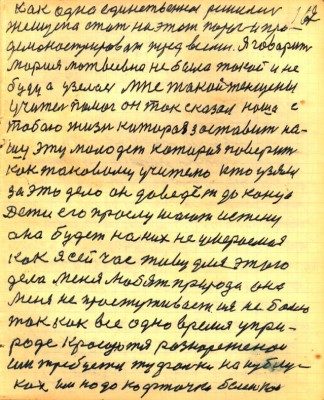 как одна единственная решилась
женщина стать на этот порог и про-
демонстрировать пред всеми. Я говорит
мария матвеевна не была такой и не
буду узелок мне такой женщени
учитель помог он так сказал наша с
тобою жизь которая заставит на-
шу эту молодеж которая поверит
как таковому учителю кто узяли
за это дело он доведёт до конца
Дети его прослушают истену
она будет на них не умераемая
как я сейчас живу для этого
дела меня любят природа она
меня не простуживает ия не болею
так как все одно время упри-
роде красуются разнаряженаи
им требуется
ках им надо карточка балики